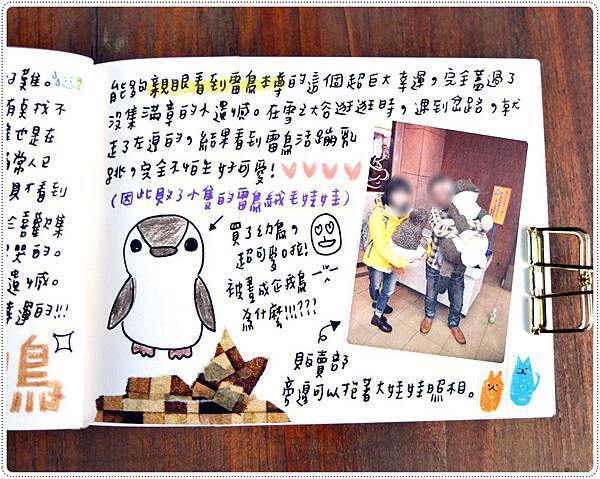 難。
找不
也是在
常人已
不看到
喜歡集
哭的。
遺憾。
幸運的!!!
鳥
能夠親眼看到雷鳥本尊的這個超巨大幸運，完全蓋過了
沒集滿章的小遺憾。在雪之大谷逛逛時，遇到岔路，就
走了左邊的，結果看到雷鳥活蹦亂
跳，完全不怕生好可愛！
(因此敗了小隻的雷鳥絨毛娃娃)
買了幼鳥，
超可愛啦！
被畫成企鵝
為什麼!!!???
販賣部
旁邊可以抱著大娃娃照相。